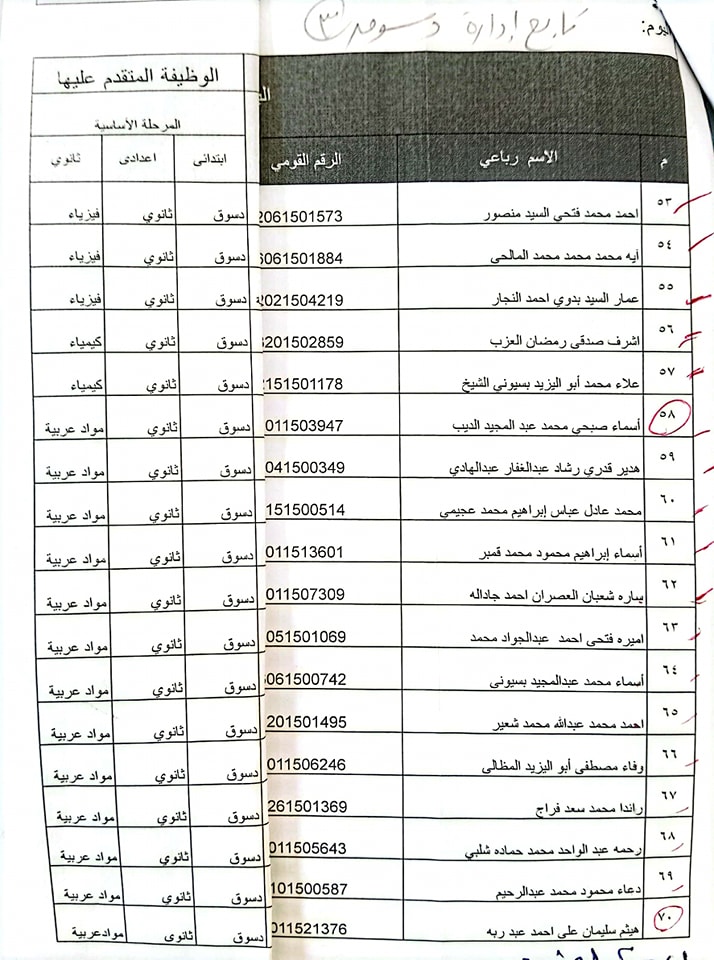 اليوم:
تابع إدارة دسوق ٣
الوظيفة المتقدم عليها
المرحلة الأساسية
م الاسم رباعي الرقم القومي ابتدائى اعدادى ثانوي
٥٣ احمد محمد فتحي السيد منصور 2061501573 دسوق ثانوي فيزياء
٥٤ آيه محمد محمد محمد المالحى 6061501884 دسوق ثانوي فيزياء
٥٥ عمار السيد بدوي احمد النجار 2021504219 دسوق ثانوي فيزياء
٥٦ اشرف صدقى رمضان العزب 201502859 دسوق ثانوي كيمياء
٥٧ علاء محمد أبو اليزيد بسيوني الشيخ 151501178 دسوق ثانوي كيمياء
٥٨ أسماء صبحي محمد عبد المجيد الديب 011503947 دسوق ثانوي مواد عربية
٥٩ هدير قدري رشاد عبدالغفار عبدالهادي 041500349 دسوق ثانوي مواد عربية
٦٠ محمد عادل عباس إبراهيم محمد عجيمي 151500514 دسوق ثانوي مواد عربية
٦١ أسماء إبراهيم محمود محمد قمبر 011513601 دسوق ثانوي مواد عربية
٦٢ يساره شعبان العصران احمد جادالله 011507309 دسوق ثانوي مواد عربية
٦٣ اميره فتحى احمد عبدالجواد محمد 051501069 دسوق ثانوي مواد عربية
٦٤ أسماء محمد عبدالمجيد بسيونى 061500742 دسوق ثانوي مواد عربية
٦٥ احمد محمد عبدالله محمد شعير 201501495 دسوق ثانوي مواد عربية
٦٦ وفاء مصطفى أبو اليزيد المظالى 011506246 دسوق ثانوي مواد عربية
٦٧ راندا محمد سعد فراج 261501369 دسوق ثانوي مواد عربية
٦٨ رحمه عبد الواحد محمد حماده شلبي 011505643 دسوق ثانوي مواد عربية
٦٩ دعاء محمود محمد عبدالرحيم 101500587 دسوق ثانوي مواد عربية
٧٠ هيثم سليمان على احمد عبد ربه 011521376 دسوق ثانوى موادعربية